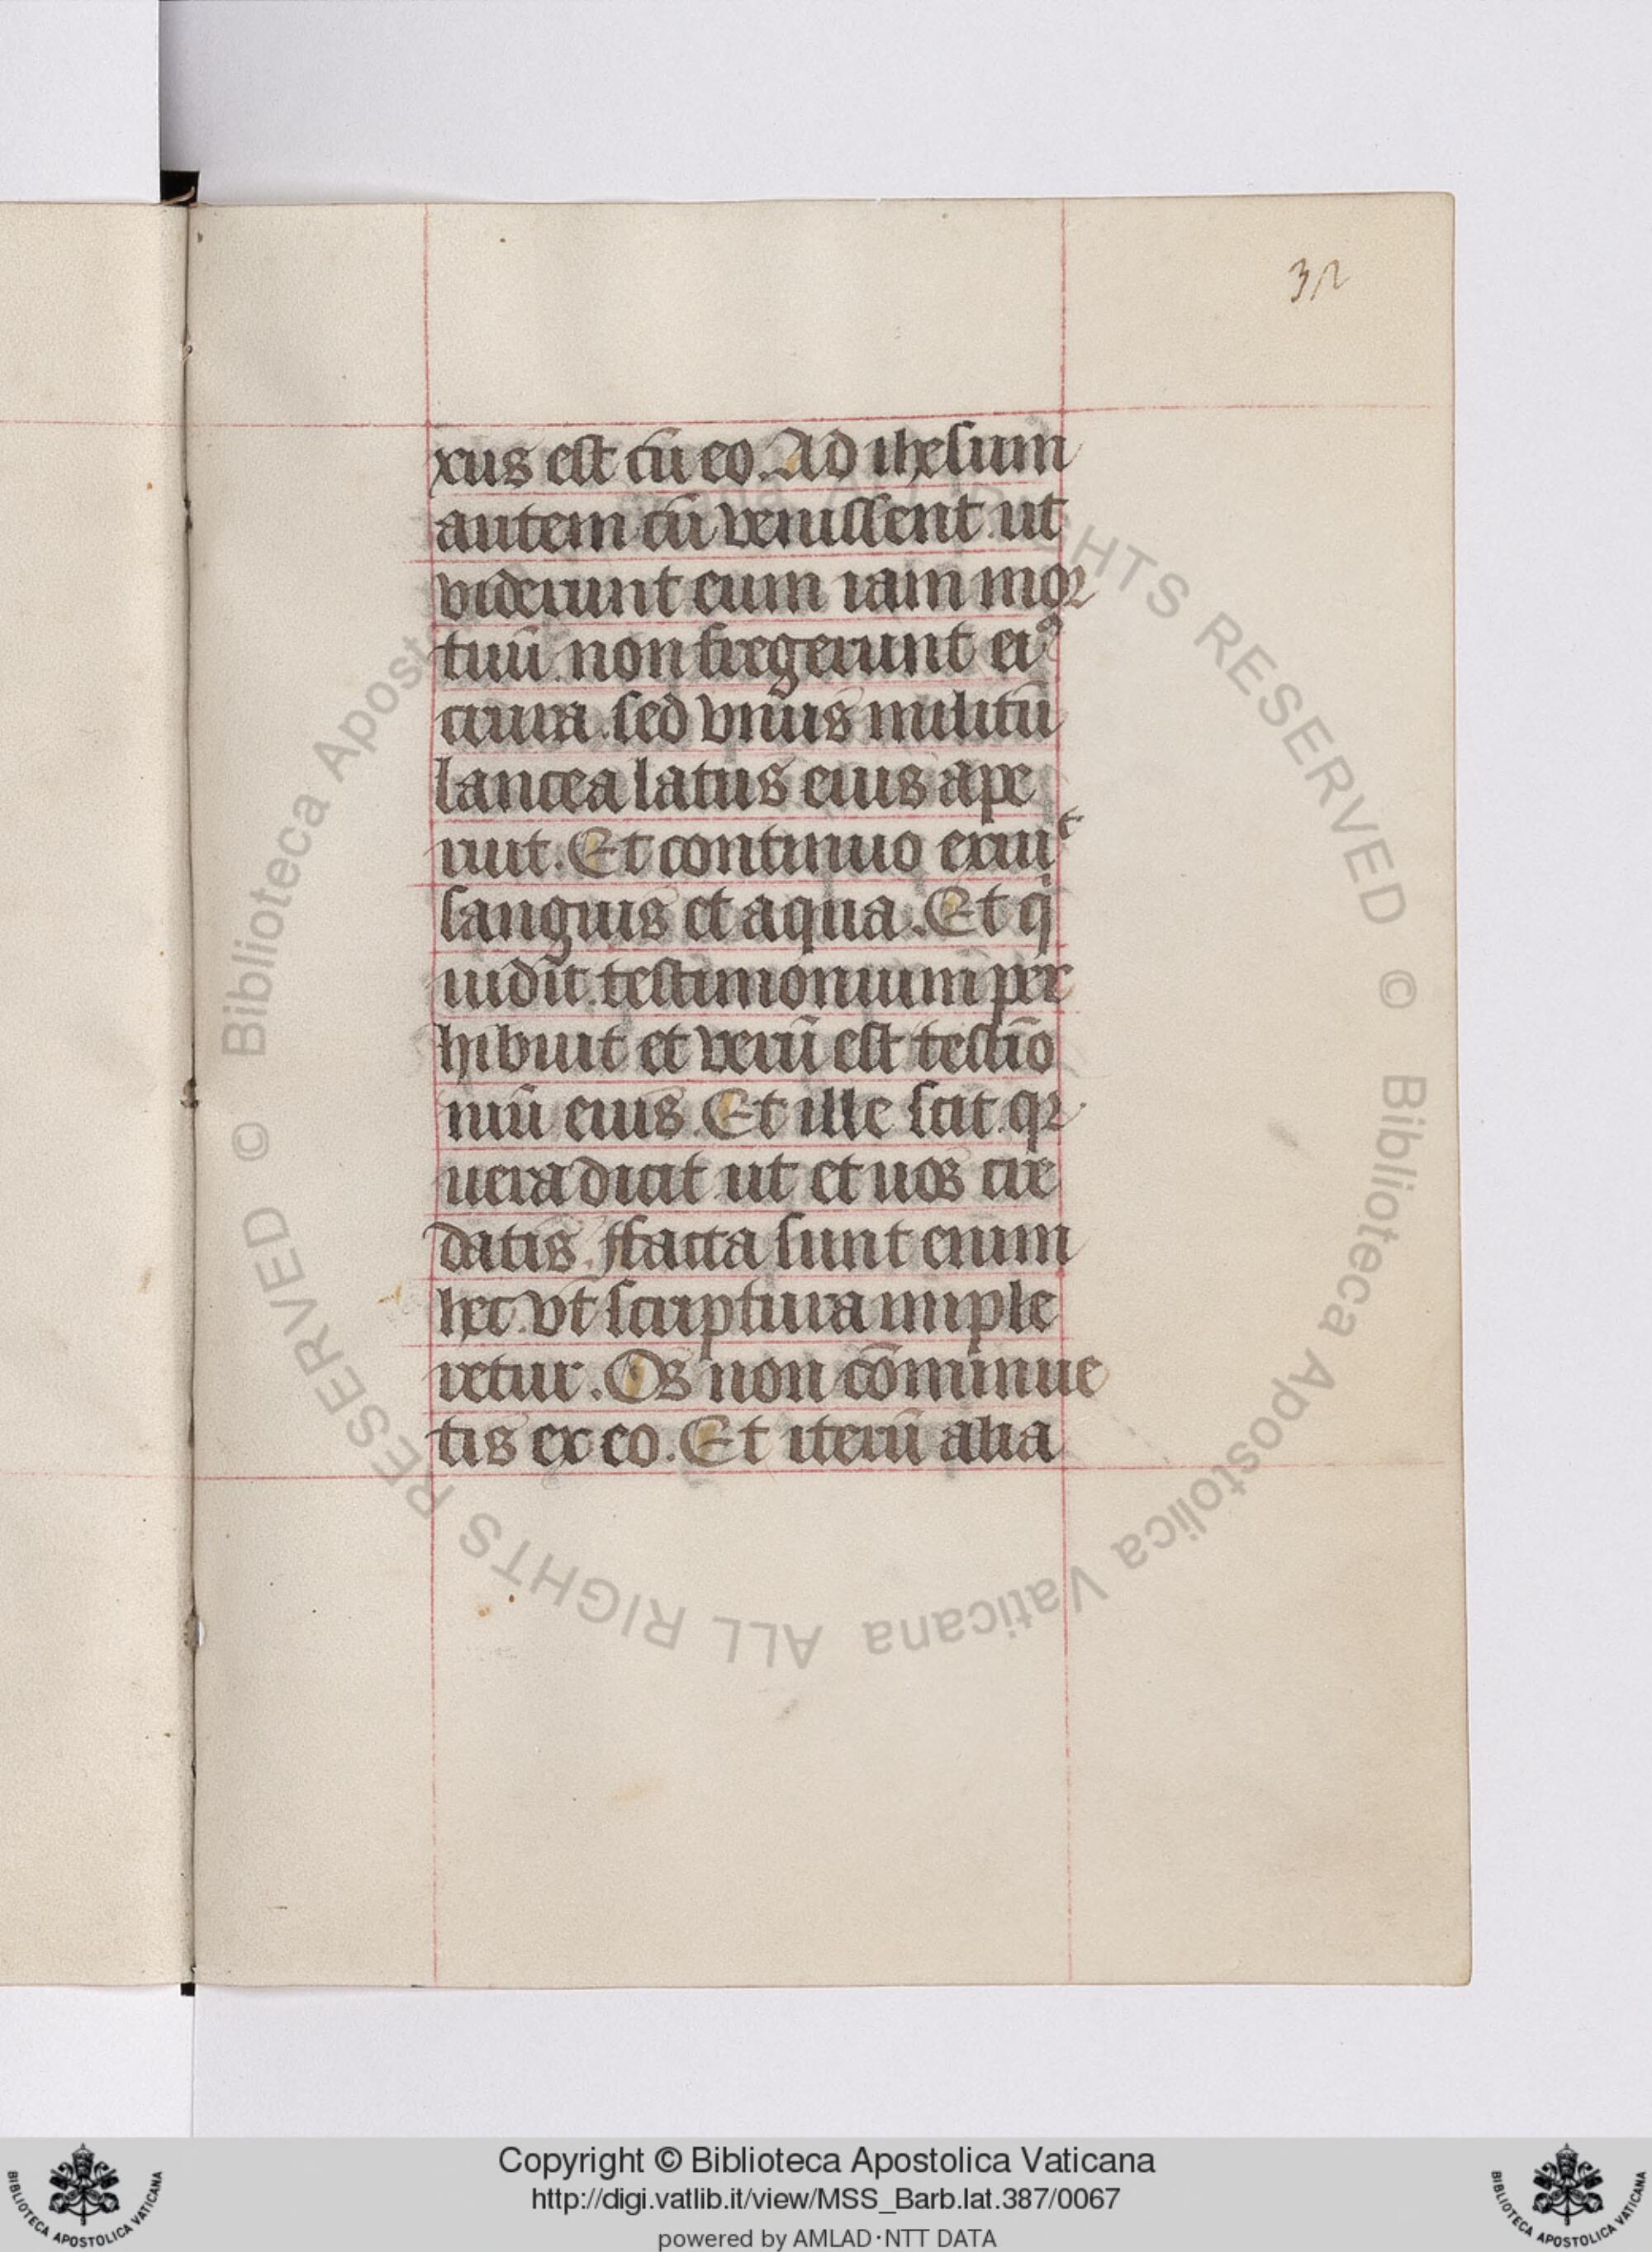 32
xus est cū eo. Ad ihesum
autem cū venissent. ut
viderunt eum iam mor
tuū. non fregerunt eiꝰ
crura. sed vnus militū
lancea latus eius ape
ruit. Et continuo exiuit
sanguis et aqua. Et q̄
uidit. testimonium per
hibuit et verū est testīo
niū eius. Et ille scit. qꝛ
uera dicit ut et uos cre
datis. ffacta sunt enim
hec. vt scriptura imple
retur. Os non cōminue
tis ex eo. Et iterū alia
© Biblioteca Apostolica Vaticana ALL RIGHTS RESERVED © Biblioteca Apostolica Vaticana ALL RIGHTS RESERVED
Copyright © Biblioteca Apostolica Vaticana
http://digi.vatlib.it/view/MSS_Barb.lat.387/0067
powered by AMLAD·NTT DATA
BIBLIOTECA APOSTOLICA VATICANA
BIBLIOTECA APOSTOLICA VATICANA